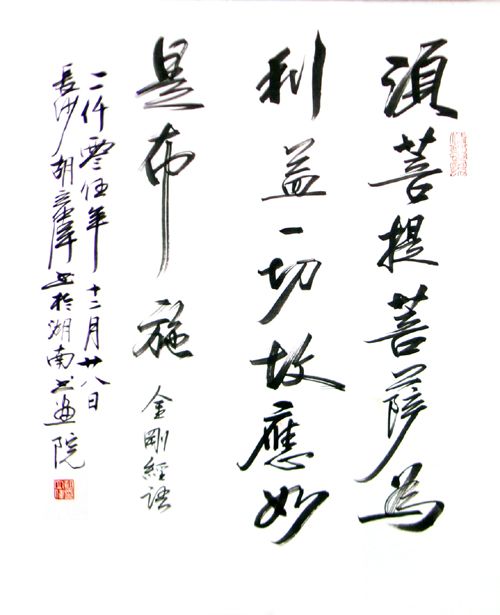 須菩提菩薩為
利益一切故應如
是布施 金剛經語
二仟零伍年十二月廿八日
長沙胡立羣书於湖南书画院